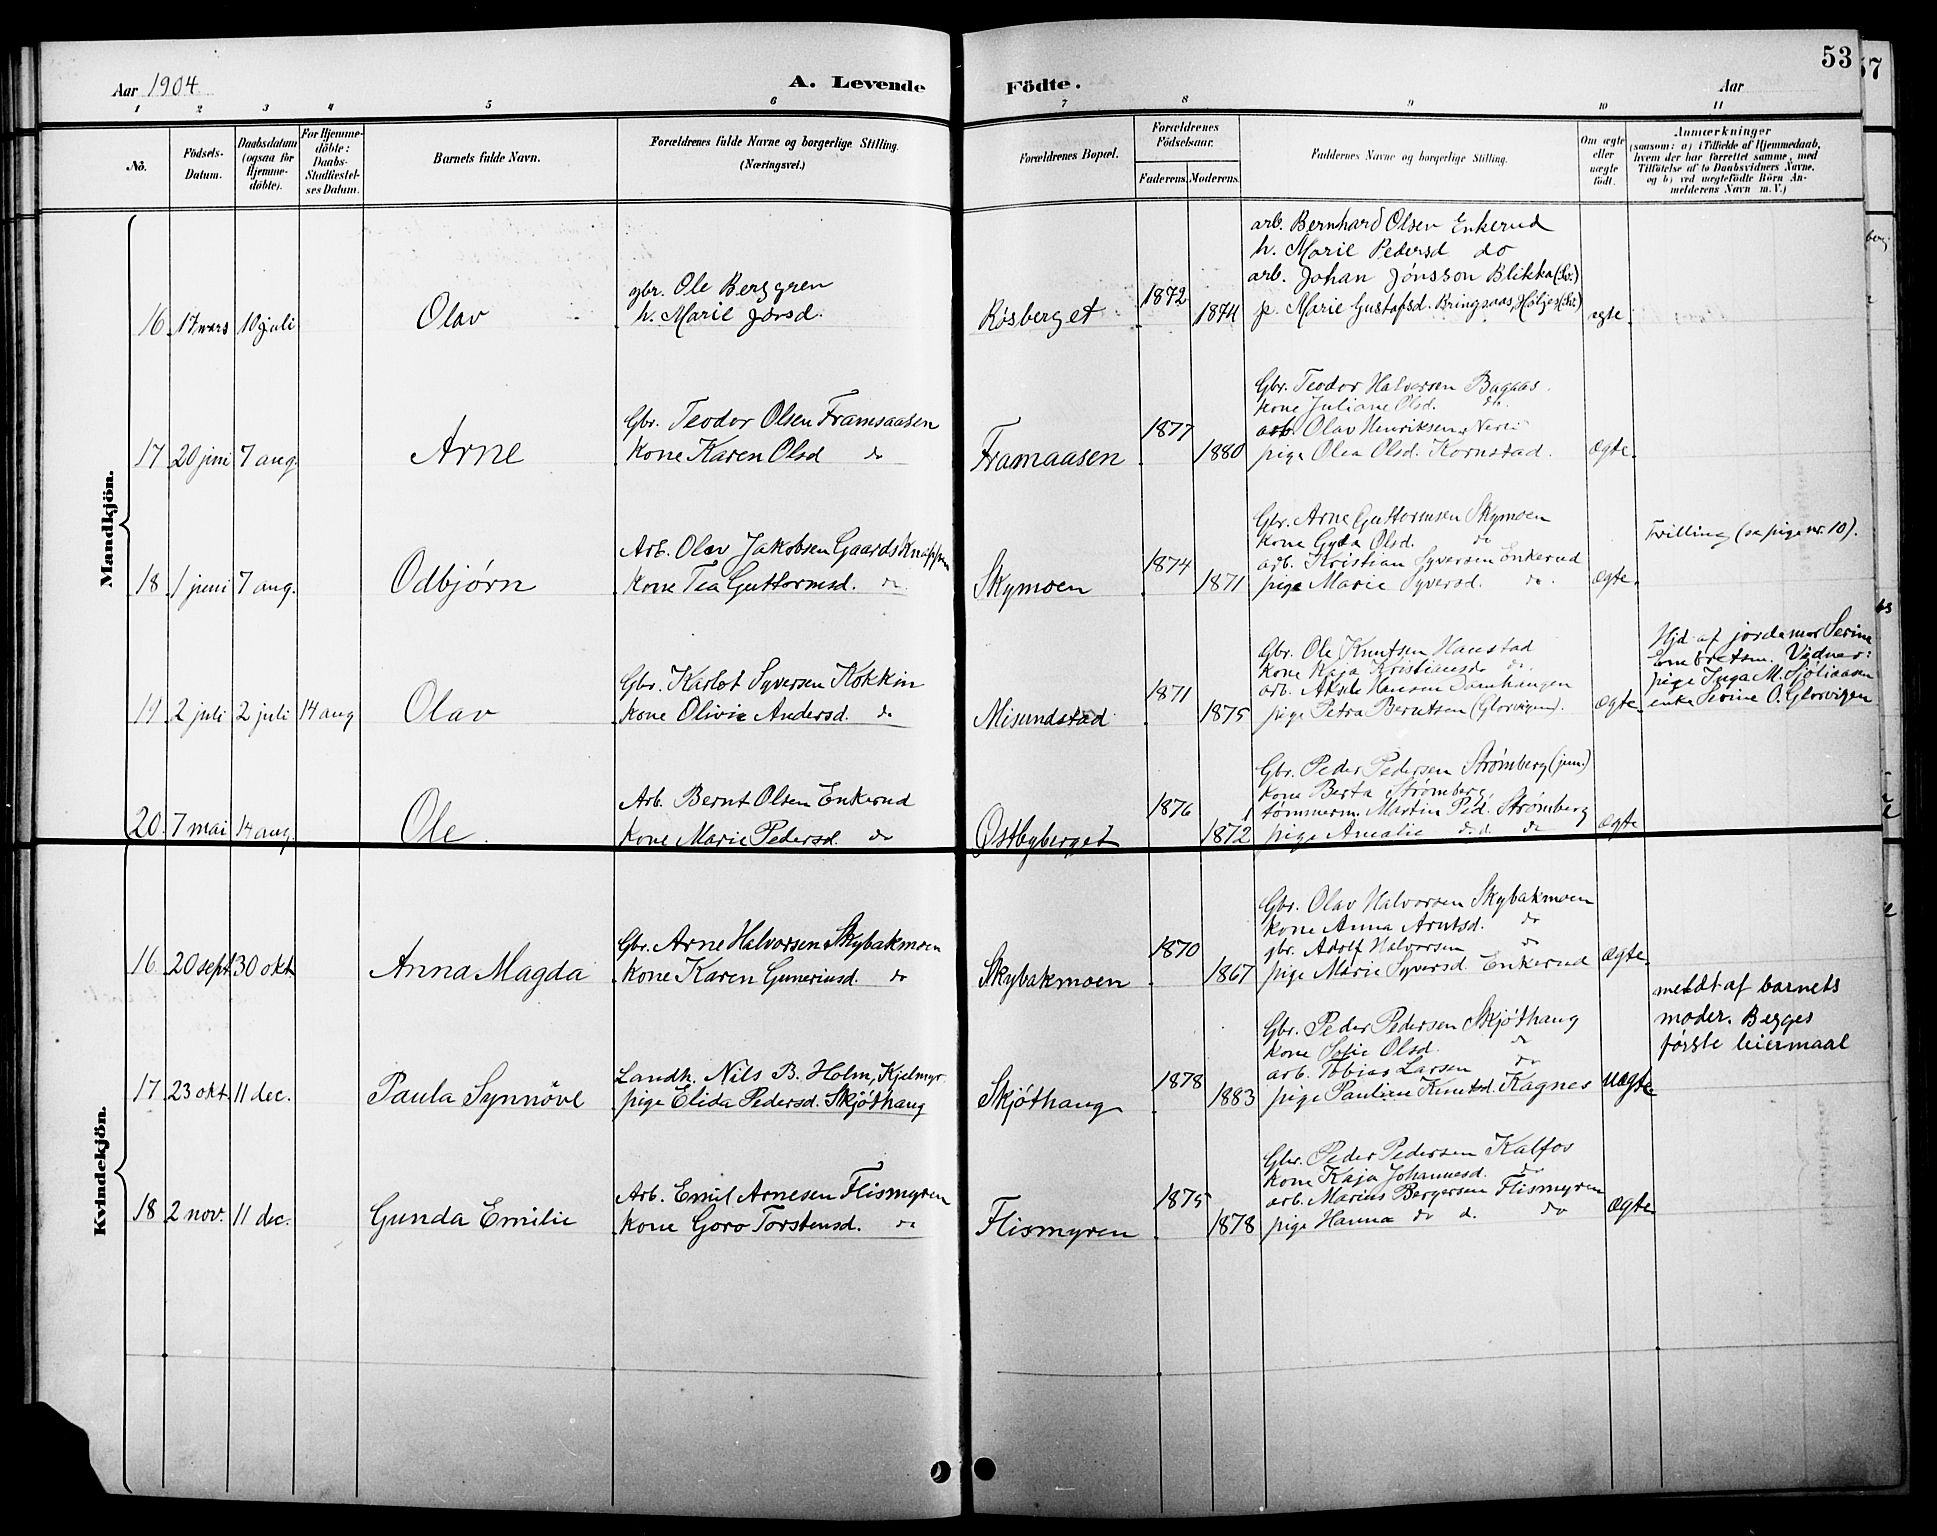 53
57
Aar 1904
A. Levende
Födte.
Aar
1 2 3 4 5 6 7 8 9 10 11
No.
Födsels-
Datum.
Daabsdatum
(ogsaa for
Hjemme-
döbte).
For Hjemme-
döbte:
Daabs-
Stadfæstel-
ses Datum.
Barnets fulde Navn.
Forældrenes fulde Navne og borgerlige Stilling.
(Næringsvei.)
Forældrenes Bopæl.
Forældrenes
Födselsaar.
Faderens.
Moderens.
Faddernes Navne og borgerlige Stilling.
Om ægte
eller
uægte
födt.
Anmærkninger
(saasom: a) i Tilfælde af Hjemmedaab,
hvem der har forrettet samme, med
Tilföielse af to Daabsvidners Navne,
og b) ved uægtefödte Börn An-
melderens Navn m. V.)
Mandkjön.
16 17 mars 10 juli
Olav
gbr. Ole Berggren
h. Marie Jonsd.
Røsberget
1872
1874
arb. Bernhard Olsen Enkerud
h. Marie Pedersd do
arb. Johan Jónsson Blikka (Sv.)
p. Marie Gustafsd. Bringsaas, Höljes (Sv.)
ægte.
17 20 juni 7 aug.
Arne
Gbr. Teodor Olsen Framaasen
kone Karen Olsd do
Framaasen
1877
1880
Gbr. Teodor Halvorsen Bagaas.
kone Juliane Olsd. do.
arb. Olav Henriksen
pige Olea Olsd. Kornstad.
ægte.
18 1 juni 7 aug.
Odbjørn
Arb. Olav Jakobsen Gaardsknappen
kone Tea Guttormsd. do
Skymoen
1874
1871
Gbr. Arne Guttormsen Skymoen
kone Gyda Olsd. do
arb. Kristian Syversen Enkerud
pige Marie Syversd. do.
ægte.
Tvilling (se pige nr. 10).
19 2 juli 2 juli 14 aug
Olav
Gbr. Karlot Syversen Kokkin
kone Olivie Andersd. do
Misundstad
1871
1875
Gbr. Ole Knutsen Hanstad
kone Kaja Kristiansd. do.
arb. Aksel Hansen
pige Petra Berntsen (Glorvigen).
ægte.
Hjd af jordemor Serine
Embretsen. Vidner:
pige Inga M. Sjøliaasen
enke Serine O. Glorvigen
20. 7 mai 14 aug.
Ole.
Arb. Bernt Olsen Enkerud
kone Marie Pedersd. do
Østbyberget
1876
1872
Gbr. Peder Pedersen Strømberg (jun.)
kone Berta Strømberg,
tømmerm. Martin Ped. Strømberg
pige Amalie do do
ægte
Kvindekjön.
16 20 sept 30 okt.
Anna Magda
Gbr. Arne Halvorsen Skybakmoen
kone Karen Guneriusd. do
Skybakmoen
1870
1867
Gbr. Olav Halvorsen Skybakmoen
kone Anna Arntsd. do
gbr. Adolf Halvorsen do
pige Marie Syversd. Enkerud
ægte.
17 23 okt. 11 dec.
Paula Synnöve
Landh. Nils B. Holm, Kjelmyr
pige Elida Pedersd. Skjøthaug
Skjøthaug
1878
1883
Gbr. Peder Pedersen Skjøthaug
kone Sofie Olsd. do
arb. Tobias Larsen do
pige Pauline Knutsd. Kagnes
uægte
meldt af barnets
moder. Begges
første leiermaal
18 2 nov. 11 dec.
Gunda Emilie
Arb. Emil Arnesen Flismyren
kone Goro Torstensd. do
Flismyren
1875
1878
Gbr. Peder Pedersen Kalfos
kone Kaja Johannesd. do
arb. Marius Bergersen Flismyren
pige Hanna do d. do
ægte